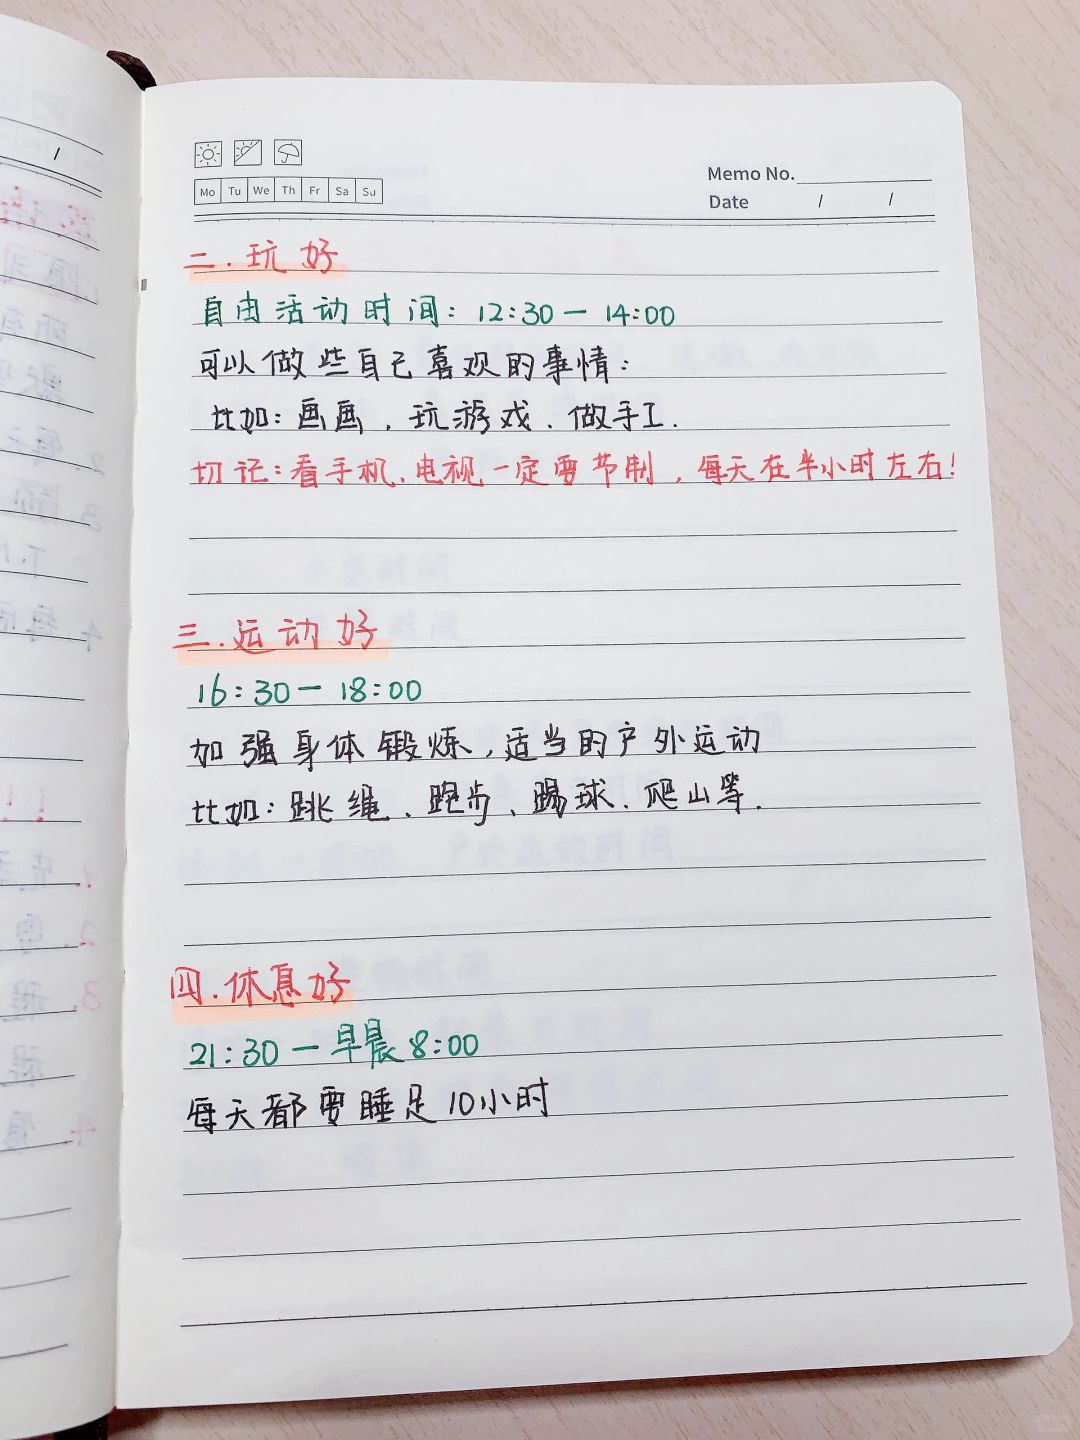 Mo Tu We Th Fr Sa Su
Memo No.
Date / /
二.玩好
自由活动时间：12:30—14:00
可以做些自己喜观的事情：
比如：画画，玩游戏、做手工.
切记：看手机、电视一定要节制，每天在半小时左右！
三.运动好
16:30—18:00
加强身体锻炼，适当的户外运动
比如：跳绳、跑步、踢球、爬山等.
四.休息好
21:30—早晨8:00
每天都要睡足10小时